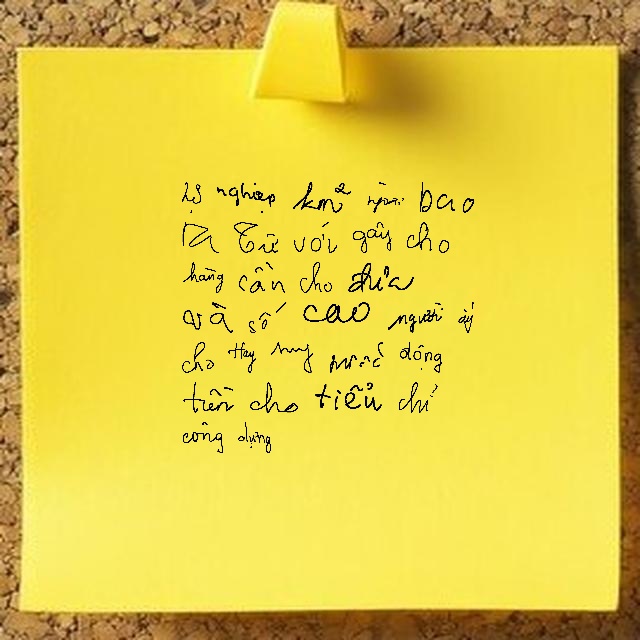 nghiệp km² bao
Từ với gây cho
hàng cần cho đưa
và số cao người ấy
cho Hay nước động
tiền cho tiểu chí
công dựng